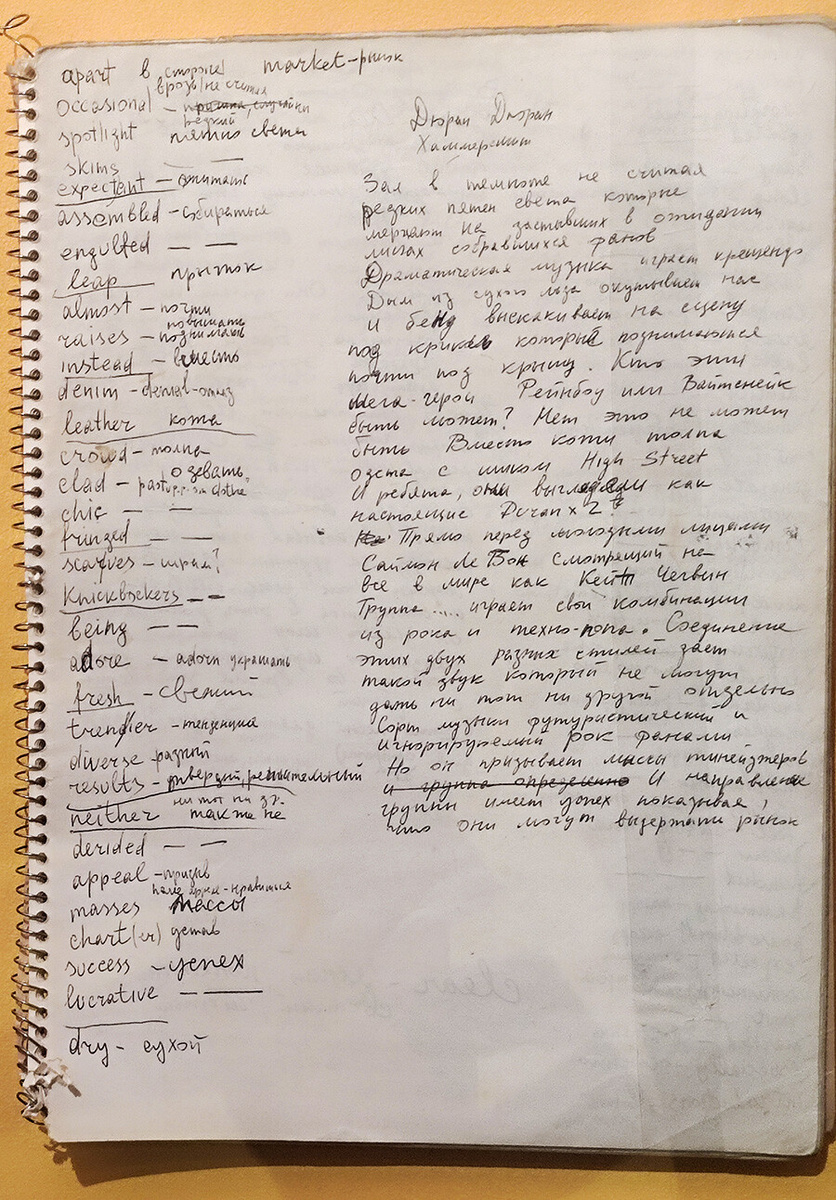 apart в стороне market - рынок
врозь/не считая
occasional - случайны
редкий
spotlight пятно света
skims —
expectant - ожитать
assembled - собираться
engulted — —
leap прыжок
almost - почти
повышать
raises - поднимать
instead - вместо
denim - denial-отказ
leather кожа
crowd - толпа
одевать
clad - past clothe
chic — —
frinzed — —
scarves - шрам?
Knickbockers — —
being — —
adore - adorn украшать
fresh - свежий
trendier - тенденция
diverse разный
results -
ни тот ни др.
neither также не
derided — —
appeal - призыв
нравиться
masses массы
chart(er) устав
success - успех
lucrative — —
dry - сухой
Дюран Дюран
Хаммерсмит
Зал в темноте не считая
редких пятен света которые
мерцают на застывших в ожидании
лицах собравшихся фанов
Драматическая музыка играет крещендо
Дым из сухого льда окутывает нас
и бенд выскакивает на сцену
под крики который поднимаются
почти под крышу. Кто эти
Мега-герои Рейнбоу или Вайтснейк
быть может? Нет это не может
быть Вместо кожи толпа
одета с шиком High Street
И ребята, они выглядели как
настоящие Дюран x 2?
Прямо перед молодыми лицами
Саймон Ле Бон смотрящий на
все в мире как Кейт Чегвин
Группа .... играет свои комбинации
из рока и техно-попа. Соединение
этих двух разных стилей дает
такой звук который не могут
дать ни тот ни другой отдельно
Сорт музыки футуристический и
игнорируемый рок фанами
Но он призывает массы тинейджеров
и группа определенно И направление
группы имеет успех показывая,
что они могут выдержать рынок